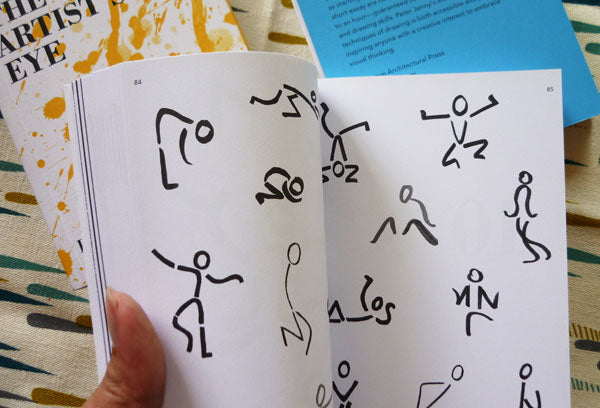 THE
ARTIST'S
EYE
short essay are
to an hour—guaranteed
and drawing skills. Peter Jenny's
techniques of drawing is both accessible and
inspiring anyone with a creative interest to embrace
visual thinking.
Architectural Press
84
85